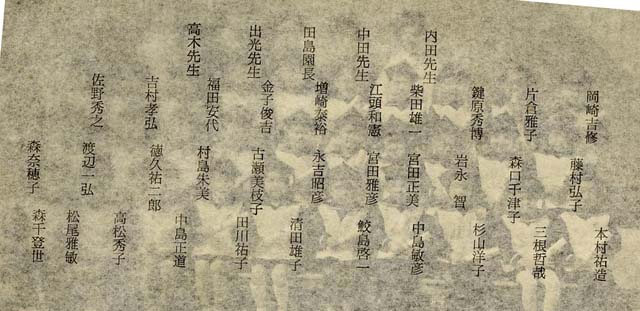 内田先生
中田先生
田島園長
出光先生
高木先生
岡崎吉修
片倉雅子
鍵原秀博
柴田雄一
江頭和憲
増崎泰裕
金子俊吉
福田安代
吉村孝弘
佐野秀之
藤村弘子
森口千津子
岩永　智
宮田正美
宮田雅彦
永吉昭彦
古瀬美枝子
村島朱美
徳久祐二郎
渡辺一弘
森奈穂子
本村祐造
三根哲哉
杉山洋子
中島敏彦
鮫島啓一
清田雄子
田川祐子
中島正道
高松秀子
松尾雅敏
森千登世